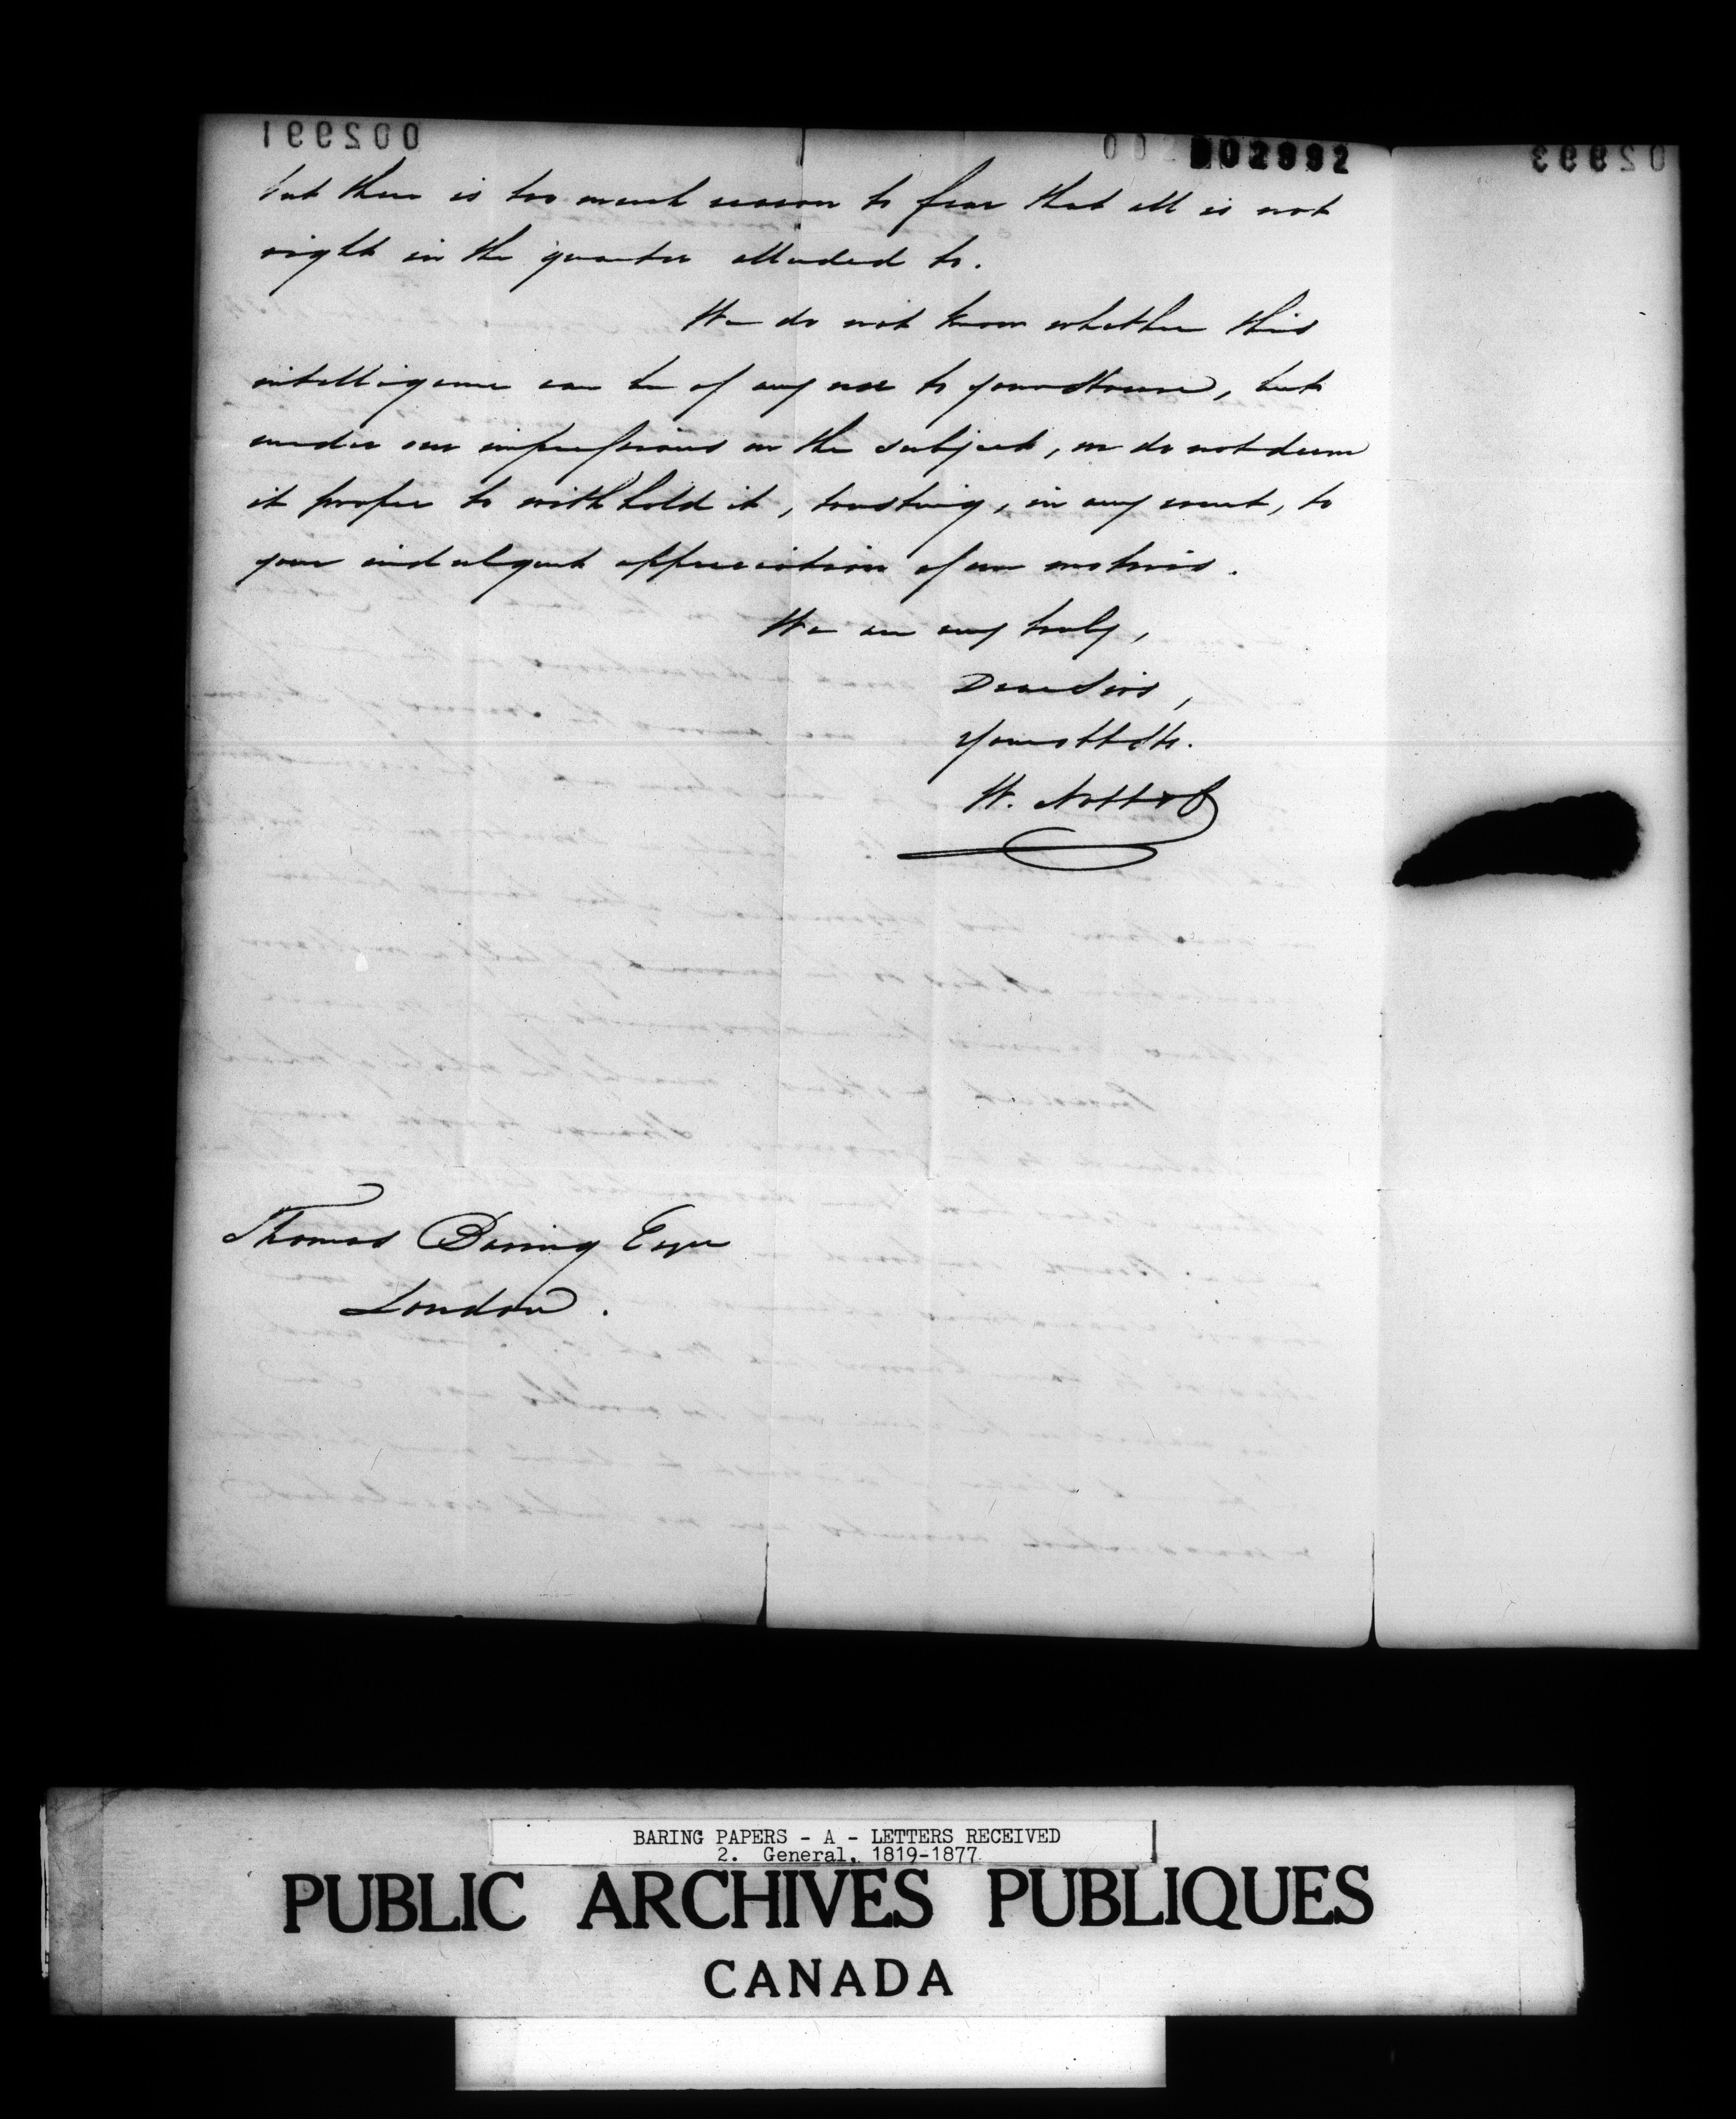 002992
but there is too much reason to fear that all is not
right in the quarter alluded to.
We do not know whether this
intelligence can be of any use to your House, but
under our impressions on the subject, we do not deem
it proper to withhold it, trusting, in any event, to
your indulgent appreciation of our motives.
We are very truly,
Dear Sirs,
Your Ob St.
W. Nott & Co
Thomas Baring Esqre
London.
BARING PAPERS - A - LETTERS RECEIVED
2. General, 1819-1877
PUBLIC ARCHIVES PUBLIQUES
CANADA